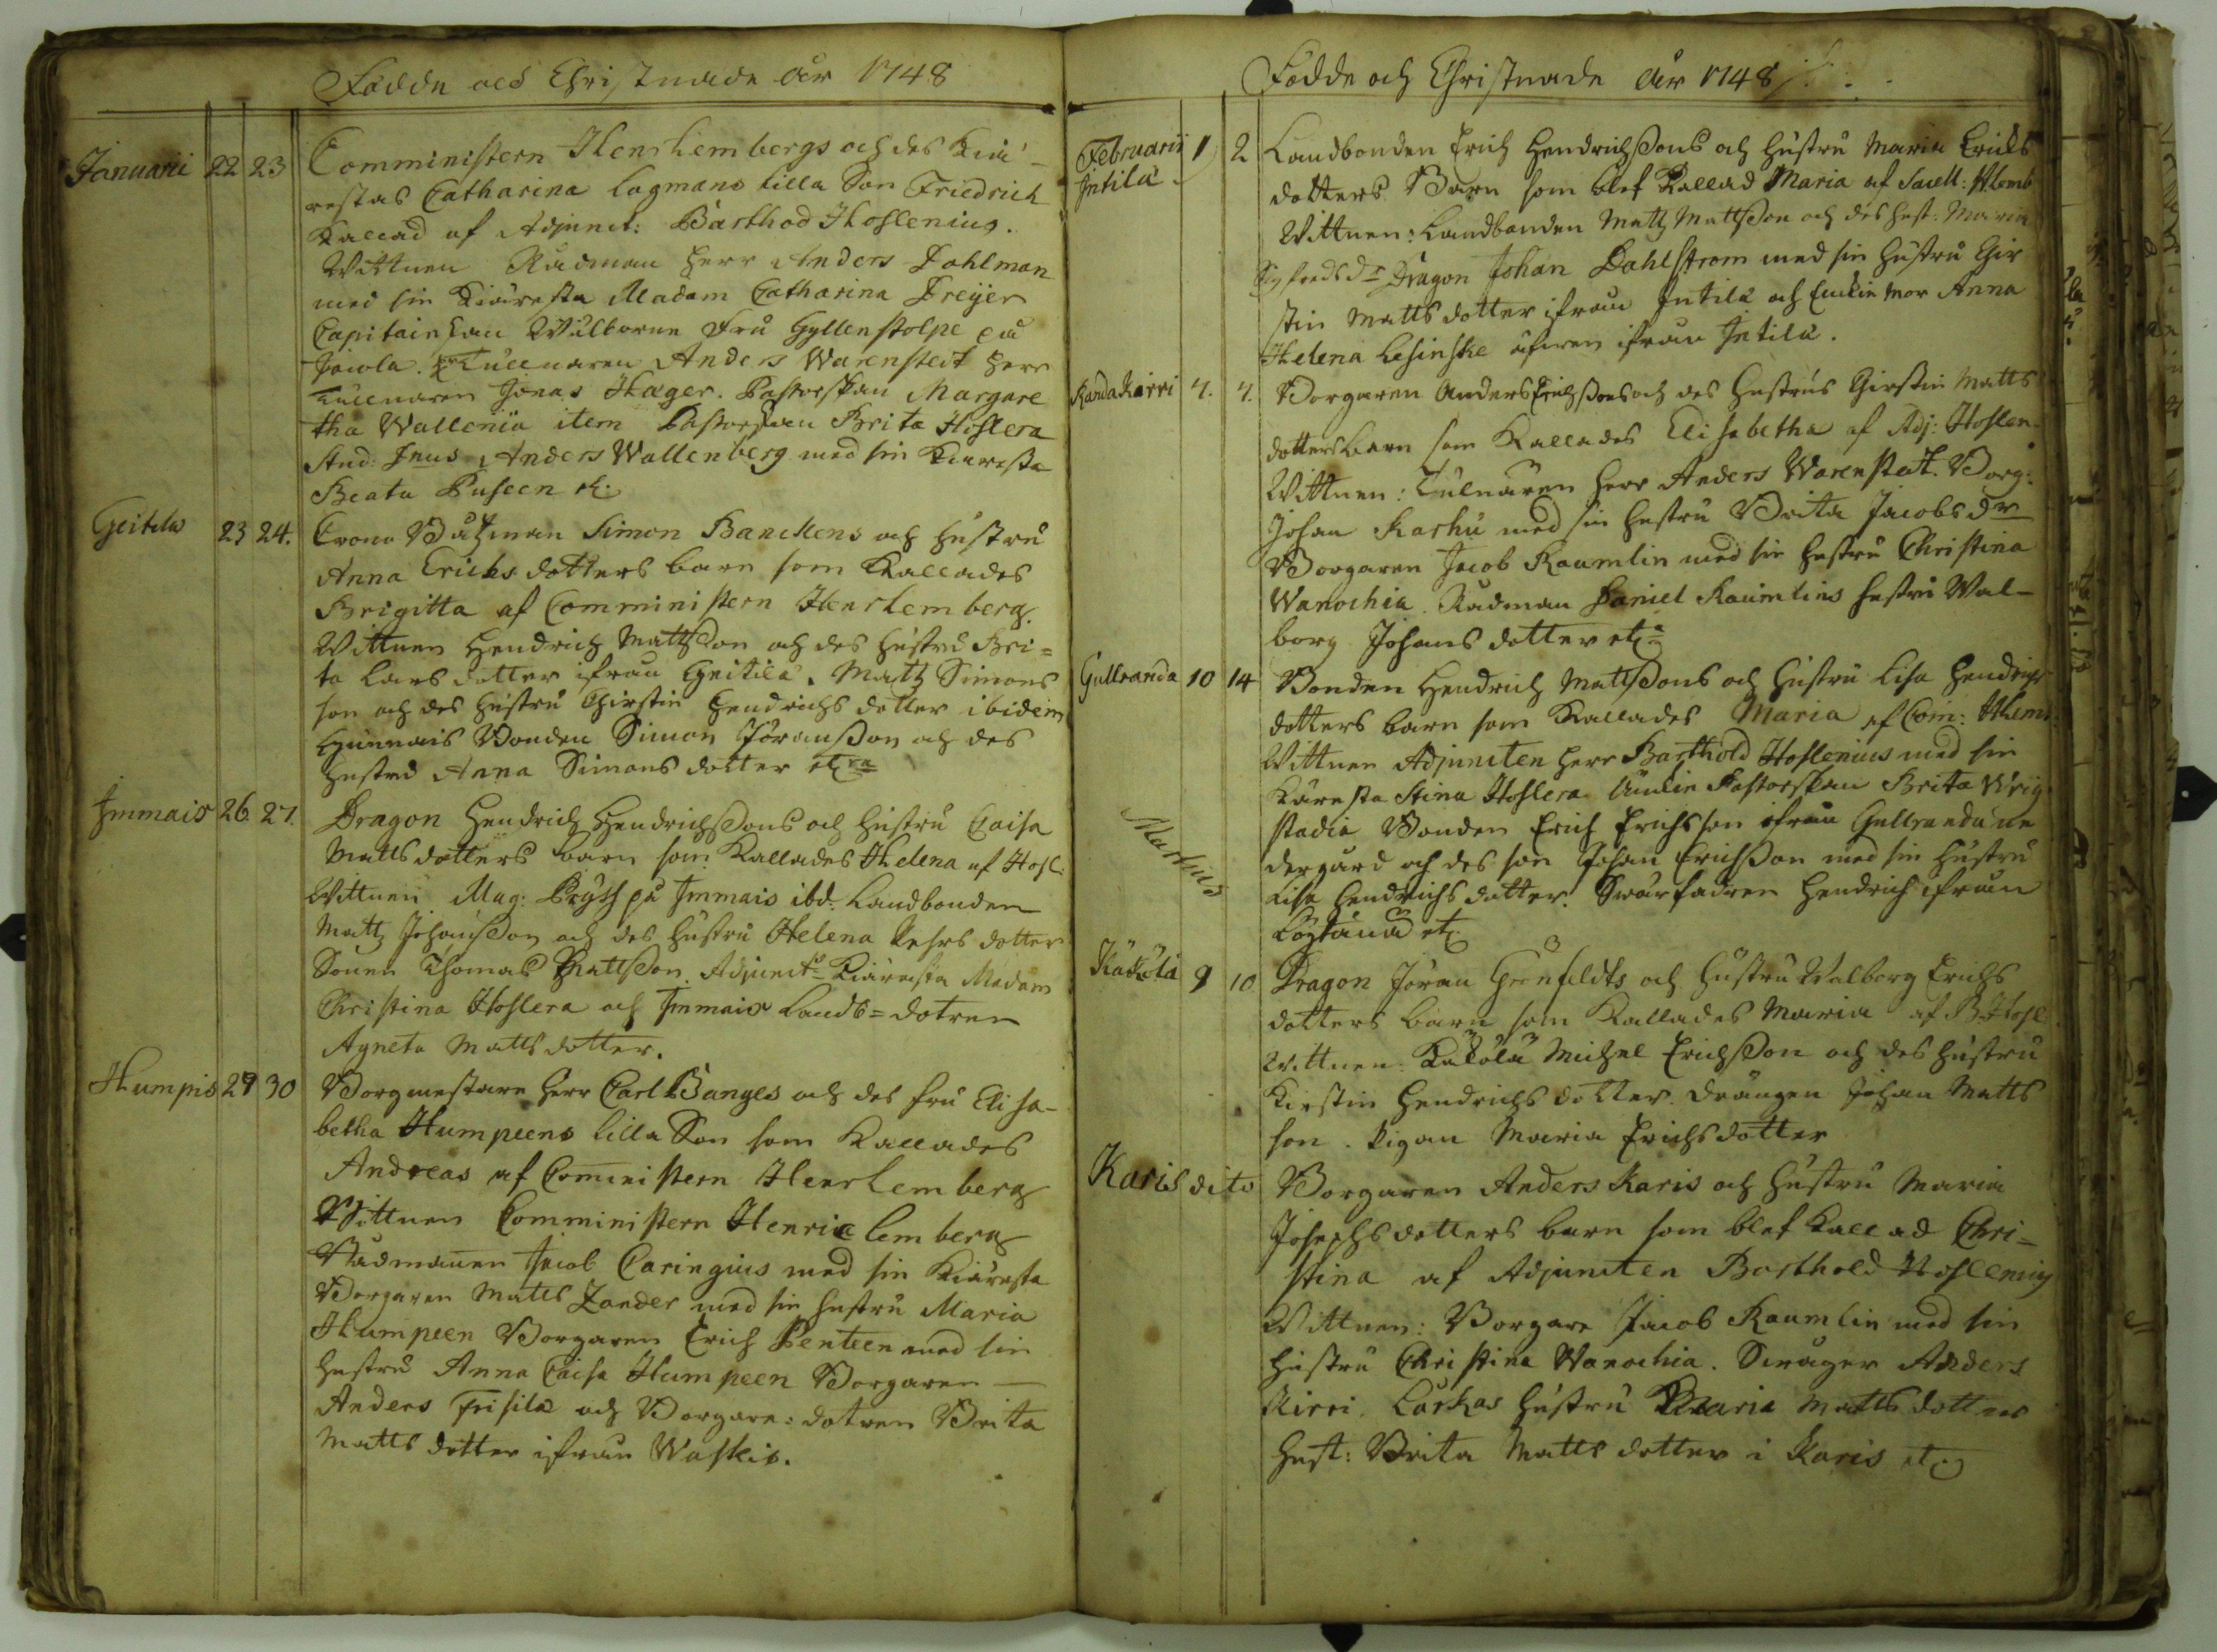 Födde och Christnade år 1748
Januarii 22 23 Comministern Henr Lembergs och des Kiä-
restas Catharina Lagmans lilla Son Friedrich
Kallad af Adjunct: Barthod Hoslenius.
Wittnen Rådman Herr Anders Dahlman
med sin Kiäresta Madam Catharina Dreijer
Capitainskan Wälborne Fru Gyllenstolpe på
Tullnaren Anders Warenstedt Herr
Tullnaren Jonas Hæger. Pastorskan Margare
tha Wallenia item Pastorskan Brita Hoslera
Stud: Anders Wallenberg med sin Kiäresta
Beata Puseen etc.
Geitila 23 24. Crono Båtzman Simon Banckens och hustru
Anna Erichs dotters barn som Kallades
Brigitta af Comministern Henr Lemberg.
Wittnen Hendrich Mattsson och des hustru Bri=
ta Lars dotter ifrån Geitila. Matz Simons
son och des hustru Chirstin Hendrichs dotter ibidem
Bonden Simon Göransson och des
hustru Anna Simons dotter etc
Immais 26. 27. Dragon Hendrich Hendrichssons och hustru Caisa
Matts dotters barn som Kallades Helena af Hosl:
Wittnen Mag: Pryss på Immais ibd. Landbonden
Matz Johansson och des hustru Helena Pehrs dotter
Sonen Thomas Mattsson. Adjunct Kiäresta Madam
Christina Hoslera och Immais Landb=dotren
Agneta Matts dotter.
Humpis 29 30 Borgmestare Herr Carl Banges och des fru Elisa-
betha Humpeens lilla Son som Kallades
Andreas af Comministern Henr Lemberg
Wittnen Comministern Henric Lemberg
Rådmannen Jacob Caringius med sin Kiäresta
Borgaren Matts Zander med sin hustru Maria
Humpeen Borgaren Erich Penteen med sin
hustru Anna Caisa Humpeen Borgaren
Anders Frisila och Borgare=dotren Brita
Matts dotter ifrån Waskis.
Födde och Christnade år 1748
Februarii 1 2 Landbonden Erich Hendrichssons och hustru Maria Erichs
Intila dotters Barn som blef Kallad Maria af Sacell: HLemb
Wittnen: Landbonden Matz Mattsson och des hust: Maria
Sigfredsdr Dragon Johan Dahlstrom med sin hustru Chir
stin Matts dotter ifrån Intila och Enkie mor Anna
Helena Lesinske äfwen ifrån Intila.
Randakarri 4. 4. Borgaren Anders Erichssons och des hustrus Chirstin Matts
dotters barn som Kallades Elisabetha af Adj: Hoslen.
Wittnen: Tulnären Herr Anders Warenstedt. Borg:
Johan Karhu med sin hustru Brita Jacobs dr
Borgaren Jacob Raumlin med sin hustru Christina
Wanochia. Rådman Daniel Raumlins hustru Wal-
borg Johans dotter etc
Gullranda 10 14 Bonden Hendrich Mattssons och hustru Lisa Hendrichs
dotters barn som Kallades Maria af Com: HLemb.
Wittnen Adjuncten Herr Barthold Hoslenius med sin
Käresta Stina Hoslera Enkie Pastorskan Brita Wrig
stadia Bonden Erich Erichsson ifrån Gullranda ne
Martius dergård och des son Johan Erichsson med sin hustru
Lisa Hendrichs dotter. Swärfadren Hendrich ifrån
etc
Käkölä 9 10 Dragon Jöran Grenfeldts och hustru Walborg Erichs
dotters barn som Kallades Maria af B. Hosl.
Wittnen. Käkölä Michel Erichsson och des hustru
Kirstin Hendrichs dotter. drängen Johan Matts
son. Pigan Maria Erichsdotter
Karis dito Borgaren Anders Karis och hustru Maria
Josephs dotters barn som blef Kallad Chri-
stina af Adjuncten Barthold Hoslenius
Wittnen: Borgare Jacob Raumlin med sin
hustru Christina Wanochia. Swåger Anders
Kirri. Lurkas hustru Maria Matts dotter
hust: Brita Matts dotter i Karis etc